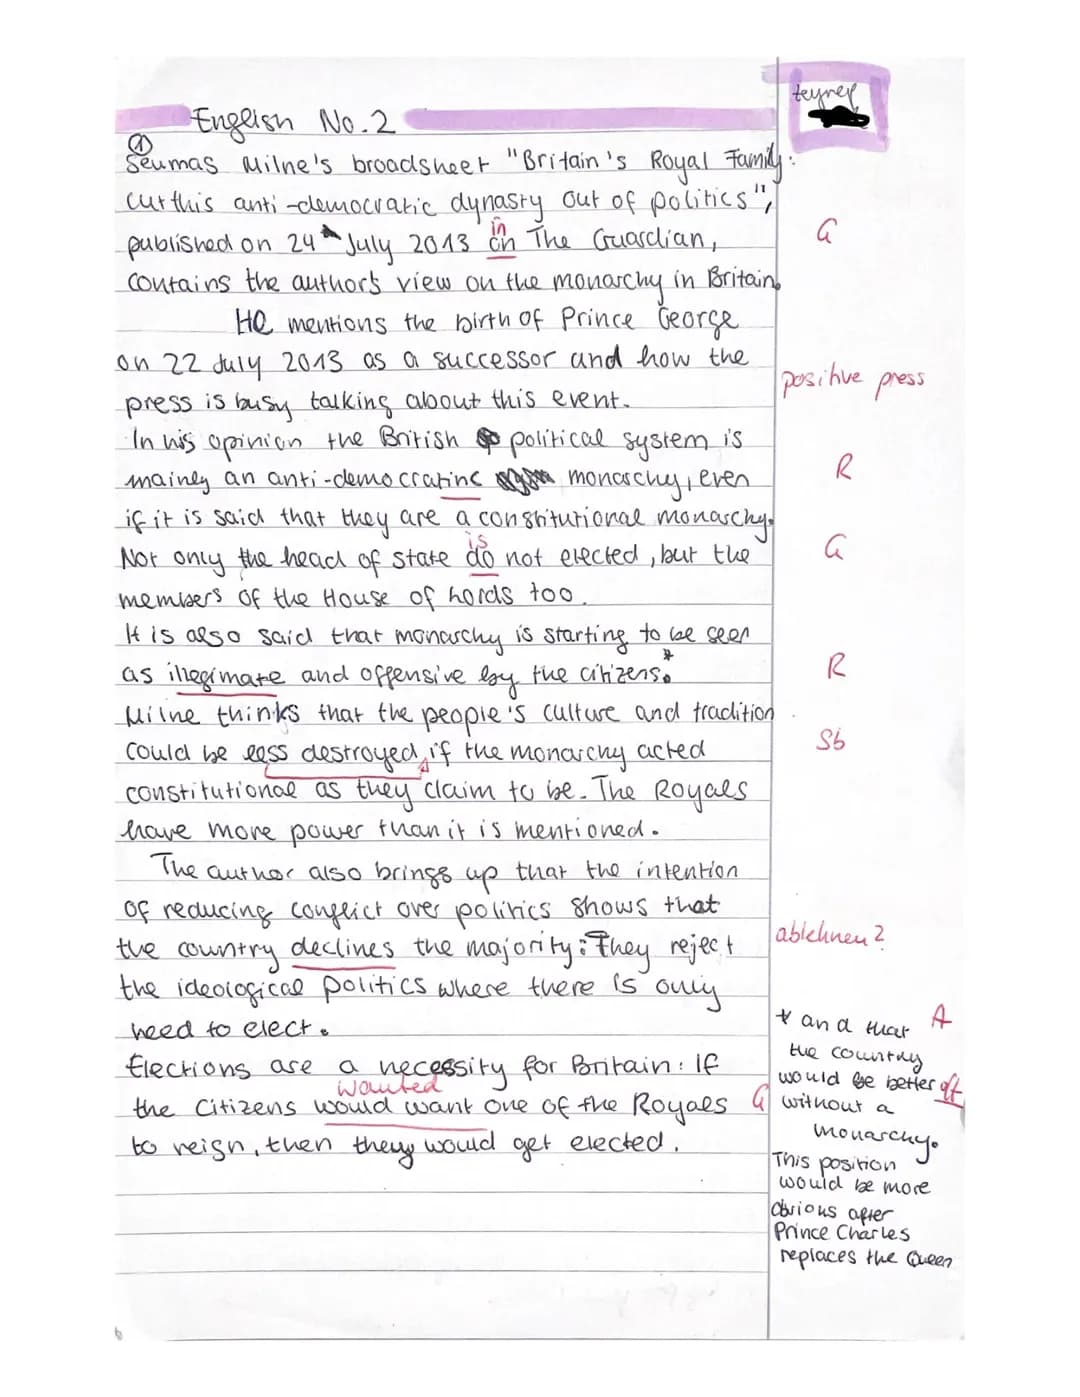 teyner
English No. 2
①
Seumas Milne's broadsheet "Britain's Royal Family:
cut this anti-democratic dynasty out of politics",
in
published on 24 July 2013 on The Guardian,
G
contains the author's view on the monarchy in Britain.
He mentions the birth of Prince George
on 22 July 2013 as a successor and how the
positive press
press is busy talking about this event.
In his opinion the British political system is
mainly an anti-democcratinc monarchy, even
R
if it is said that they are a constitutional monarchy.
is
Not only the head of state do not elected, but the
G
members of the House of Lords too.
It is also said that monarchy is starting to be seen
as illegimate and offensive by the citizens.*
R
Milne thinks that the people's culture and tradition
could be less destroyed, if the monarchy acted
Sb
constitutional as they claim to be. The Royals
have more power than it is mentioned.
The author also brings up that the intention
of reducing conflict over politics shows that
the country declines the majority: They reject
ablehnen?
the ideological politics where there is only
need to elect.
Elections are a necessity for Britain: If
wanted
the citizens would want one of the Royals
G
to reign, then they would get elected.
* and that
A
the country
would be better off
without a
monarchy.
This position
would be more
obvious after
Prince Charles
replaces the Queen